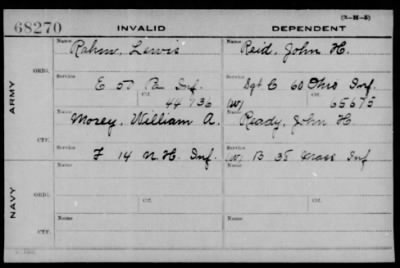 (3-H-5)
68270 INVALID DEPENDENT
Name Name
Rahm, Lewis Reid, John H.
ORIG.
Service Service
E 50 Pa Inf. Sgt. C 60 Ohio Inf.
Ctf. Ctf.
44 736 (W) 65675
ARMY
Name Name
Morey, William A. Ready, John H.
Service Service
CTF.
F 14 N.H. Inf. (W) B 35 Mass Inf
Name Name
ORIG.
Service Service
Ctf. Ctf.
NAVY
Name Name
CTF.
Service Service